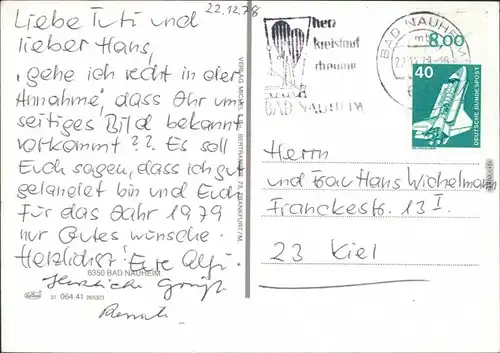 22.12.78
Liebe Tuti und
lieber Hans,
"gehe ich recht in der
Annahme", dass Ihr um-
seitiges Bild bekannt
vorkommt ?? Es soll
Euch sagen, dass ich gut
gelandet bin und Euch
für das Jahr 1979
nur Gutes wünsche.
Herzlichst! Eure
Herzliche Grüße
6350 BAD NAUHEIM
31 064.41
VERLAG MICHEL
FRANKFURT/M.
herz
kreislauf
rheuma
BAD NAUHEIM
BAD NAUHEIM
8,00
40
DEUTSCHE BUNDESPOST
Herrn
und Frau Hans Wichelmann
Franckestr. 13 I
23 Kiel